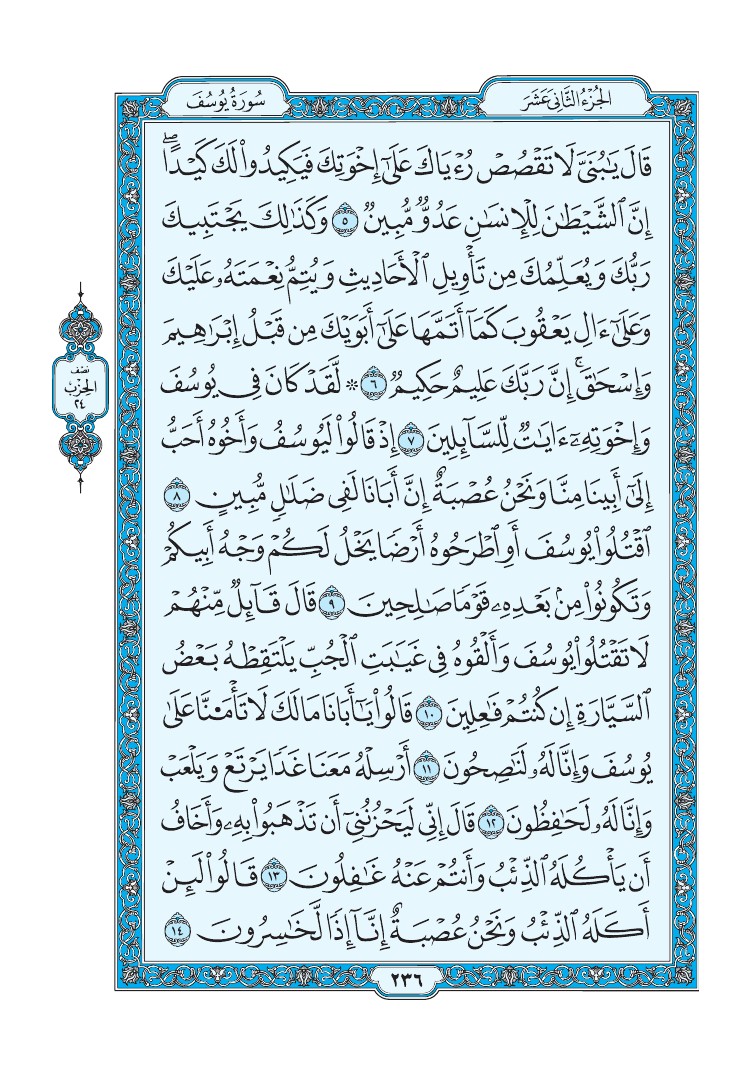 الجُزْءُ الثَّانِي عَشَرَ
سُورَةُ يُوسُفَ
قَالَ يَٰبُنَيَّ لَا تَقۡصُصۡ رُءۡيَاكَ عَلَىٰٓ إِخۡوَتِكَ فَيَكِيدُواْ لَكَ كَيۡدًاۖ
إِنَّ ٱلشَّيۡطَٰنَ لِلۡإِنسَٰنِ عَدُوّٞ مُّبِينٞ ٥ وَكَذَٰلِكَ يَجۡتَبِيكَ
رَبُّكَ وَيُعَلِّمُكَ مِن تَأۡوِيلِ ٱلۡأَحَادِيثِ وَيُتِمُّ نِعۡمَتَهُۥ عَلَيۡكَ
وَعَلَىٰٓ ءَالِ يَعۡقُوبَ كَمَآ أَتَمَّهَا عَلَىٰٓ أَبَوَيۡكَ مِن قَبۡلُ إِبۡرَٰهِيمَ
وَإِسۡحَٰقَۚ إِنَّ رَبَّكَ عَلِيمٌ حَكِيمٞ ٦ ۞ لَّقَدۡ كَانَ فِي يُوسُفَ
وَإِخۡوَتِهِۦٓ ءَايَٰتٞ لِّلسَّآئِلِينَ ٧ إِذۡ قَالُواْ لَيُوسُفُ وَأَخُوهُ أَحَبُّ
إِلَىٰٓ أَبِينَا مِنَّا وَنَحۡنُ عُصۡبَةٌ إِنَّ أَبَانَا لَفِي ضَلَٰلٖ مُّبِينٍ ٨
ٱقۡتُلُواْ يُوسُفَ أَوِ ٱطۡرَحُوهُ أَرۡضٗا يَخۡلُ لَكُمۡ وَجۡهُ أَبِيكُمۡ
وَتَكُونُواْ مِنۢ بَعۡدِهِۦ قَوۡمٗا صَٰلِحِينَ ٩ قَالَ قَآئِلٞ مِّنۡهُمۡ
لَا تَقۡتُلُواْ يُوسُفَ وَأَلۡقُوهُ فِي غَيَٰبَتِ ٱلۡجُبِّ يَلۡتَقِطۡهُ بَعۡضُ
ٱلسَّيَّارَةِ إِن كُنتُمۡ فَٰعِلِينَ ١٠ قَالُواْ يَٰٓأَبَانَا مَا لَكَ لَا تَأۡمَ۬نَّا عَلَىٰ
يُوسُفَ وَإِنَّا لَهُۥ لَنَٰصِحُونَ ١١ أَرۡسِلۡهُ مَعَنَا غَدٗا يَرۡتَعۡ وَيَلۡعَبۡ
وَإِنَّا لَهُۥ لَحَٰفِظُونَ ١٢ قَالَ إِنِّي لَيَحۡزُنُنِيٓ أَن تَذۡهَبُواْ بِهِۦ وَأَخَافُ
أَن يَأۡكُلَهُ ٱلذِّئۡبُ وَأَنتُمۡ عَنۡهُ غَٰفِلُونَ ١٣ قَالُواْ لَئِنۡ
أَكَلَهُ ٱلذِّئۡبُ وَنَحۡنُ عُصۡبَةٌ إِنَّآ إِذٗا لَّخَٰسِرُونَ ١٤
نصف
الحِزْب
٢٤
٢٣٦